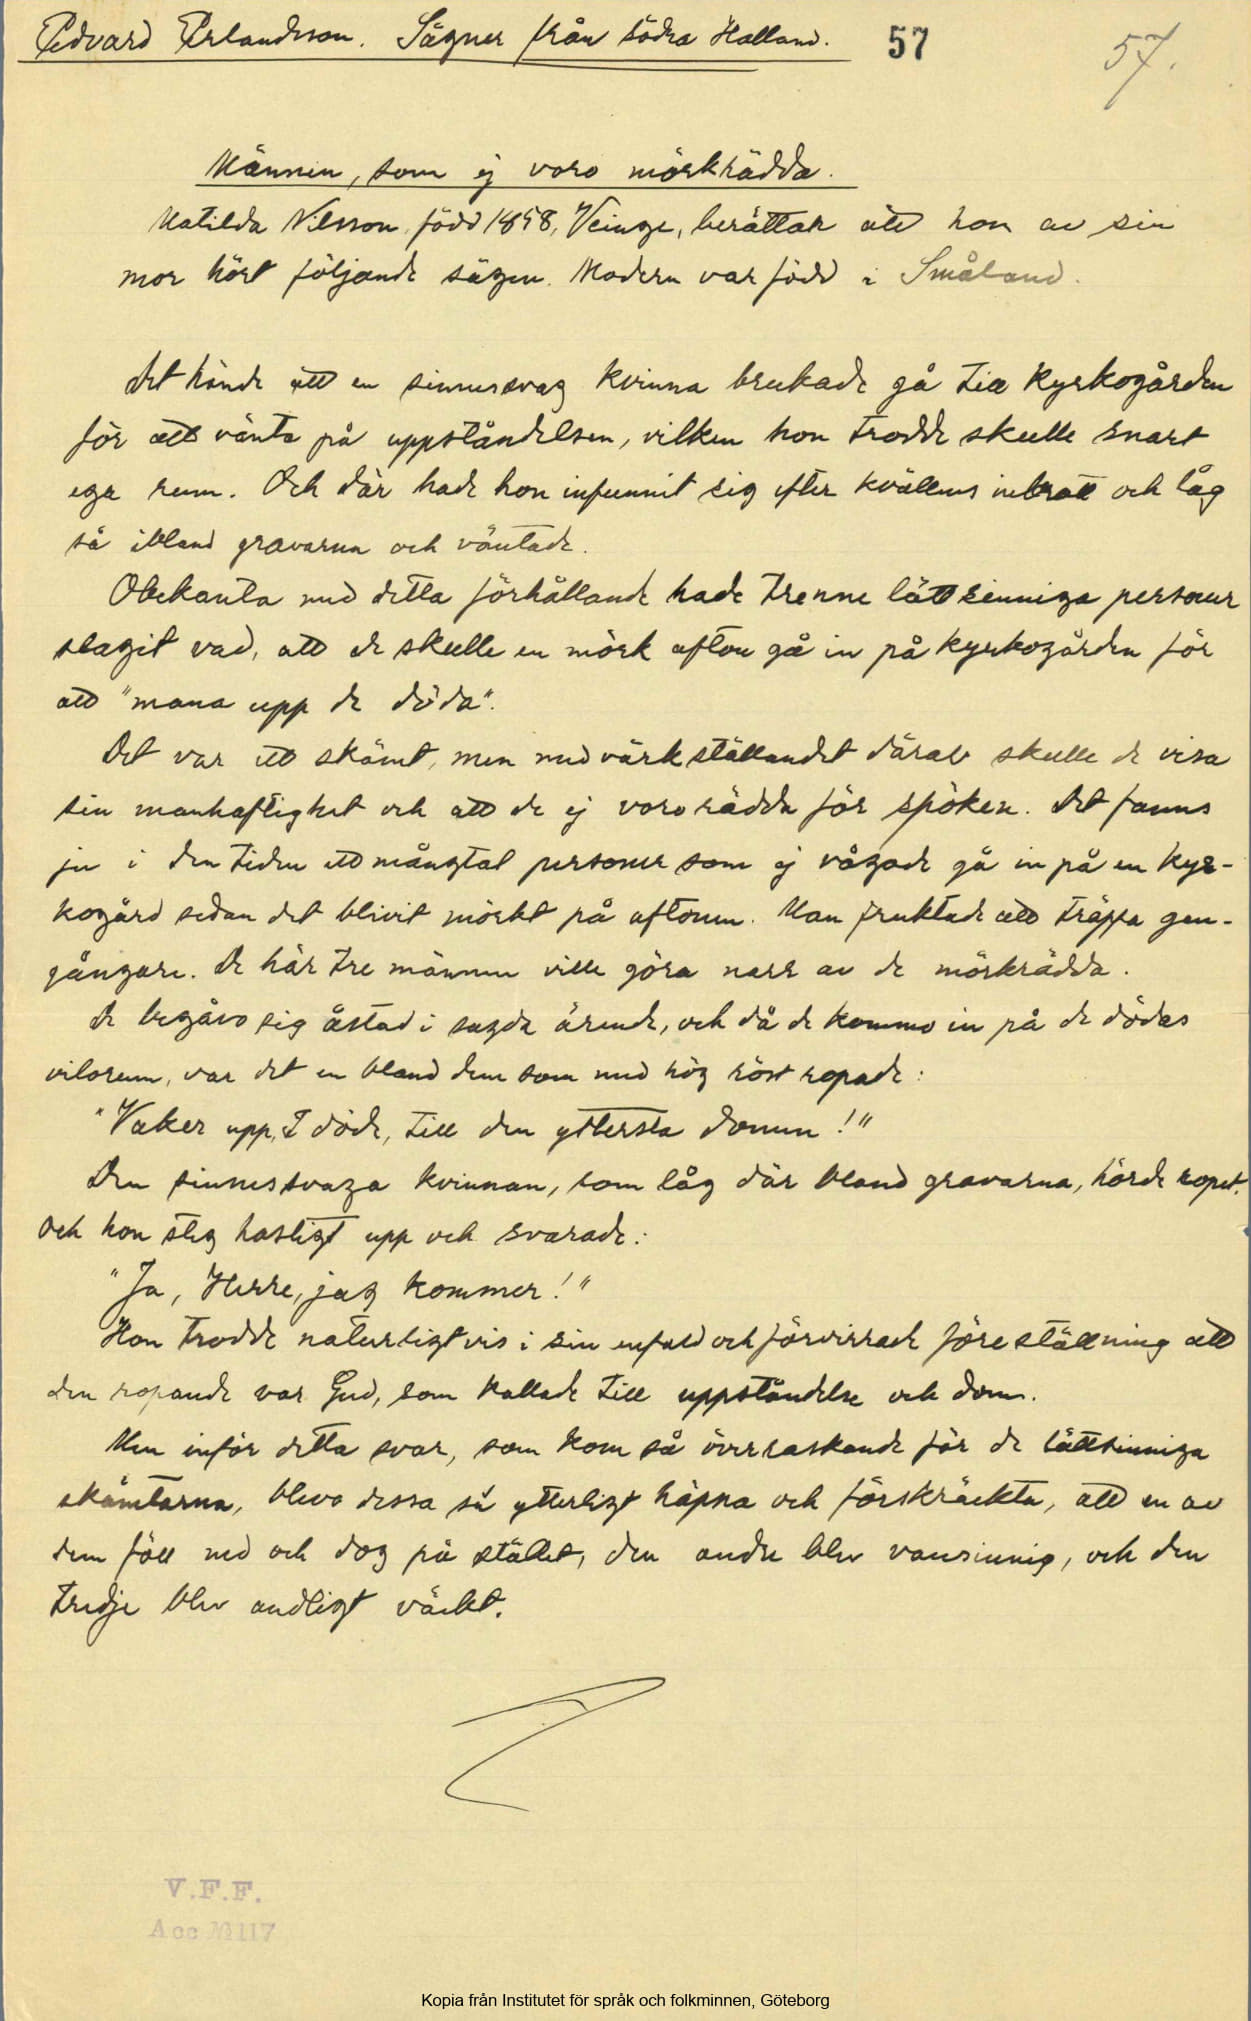 Edvard Erlandsson. Sägner från södra Halland. 57 57.
Männen, som ej voro mörkrädda.
Matilda Nilsson, född 1858, Veinge, berättar att hon av sin
mor hört följande sägen. Modern var född i Småland.
Det hände att en sinnessvag kvinna brukade gå till kyrkogården
för att vänta på uppståndelsen, vilken hon trodde skulle snart
ega rum. Och där hade hon infunnit sig efter kvällens inbrott och låg
så ibland gravarna och väntade.
Obekanta med detta förhållande hade trenne lättsinniga personer
slagit vad, att de skulle en mörk afton gå in på kyrkogården för
att "mana upp de döda".
Det var ett skämt, men med värkställandet därav skulle de visa
sin manhaftighet och att de ej voro rädda för spöken. Det fanns
ju i den tiden ett mångtal personer som ej vågade gå in på en kyr-
kogård sedan det blivit mörkt på aftonen. Man fruktade att träffa gen-
gångare. De här tre männen ville göra narr av de mörkrädda.
De begåvo sig åstad i sagda ärende, och då de kommo in på de dödas
vilorum, var det en bland dem som med hög röst ropade:
"Vaker upp, I döde, till den yttersta domen!"
Den sinnessvaga kvinnan, som låg där bland gravarna, hörde ropet.
Och hon steg hastigt upp och svarade:
"Ja, Herre, jag kommer!"
Hon trodde naturligtvis i sin enfald och förvirrade föreställning att
den ropande var Gud, som kallade till uppståndelse och dom.
Men inför detta svar, som kom så överraskande för de lättsinniga
skämtarna, blevo dessa så ytterligt häpna och förskräckta, att en av
dem föll ned och dog på stället, den andre blev vansinnig, och den
tredje blev andligt väckt.
V.F.F.
Acc № 117
Kopia från Institutet för språk och folkminnen, Göteborg